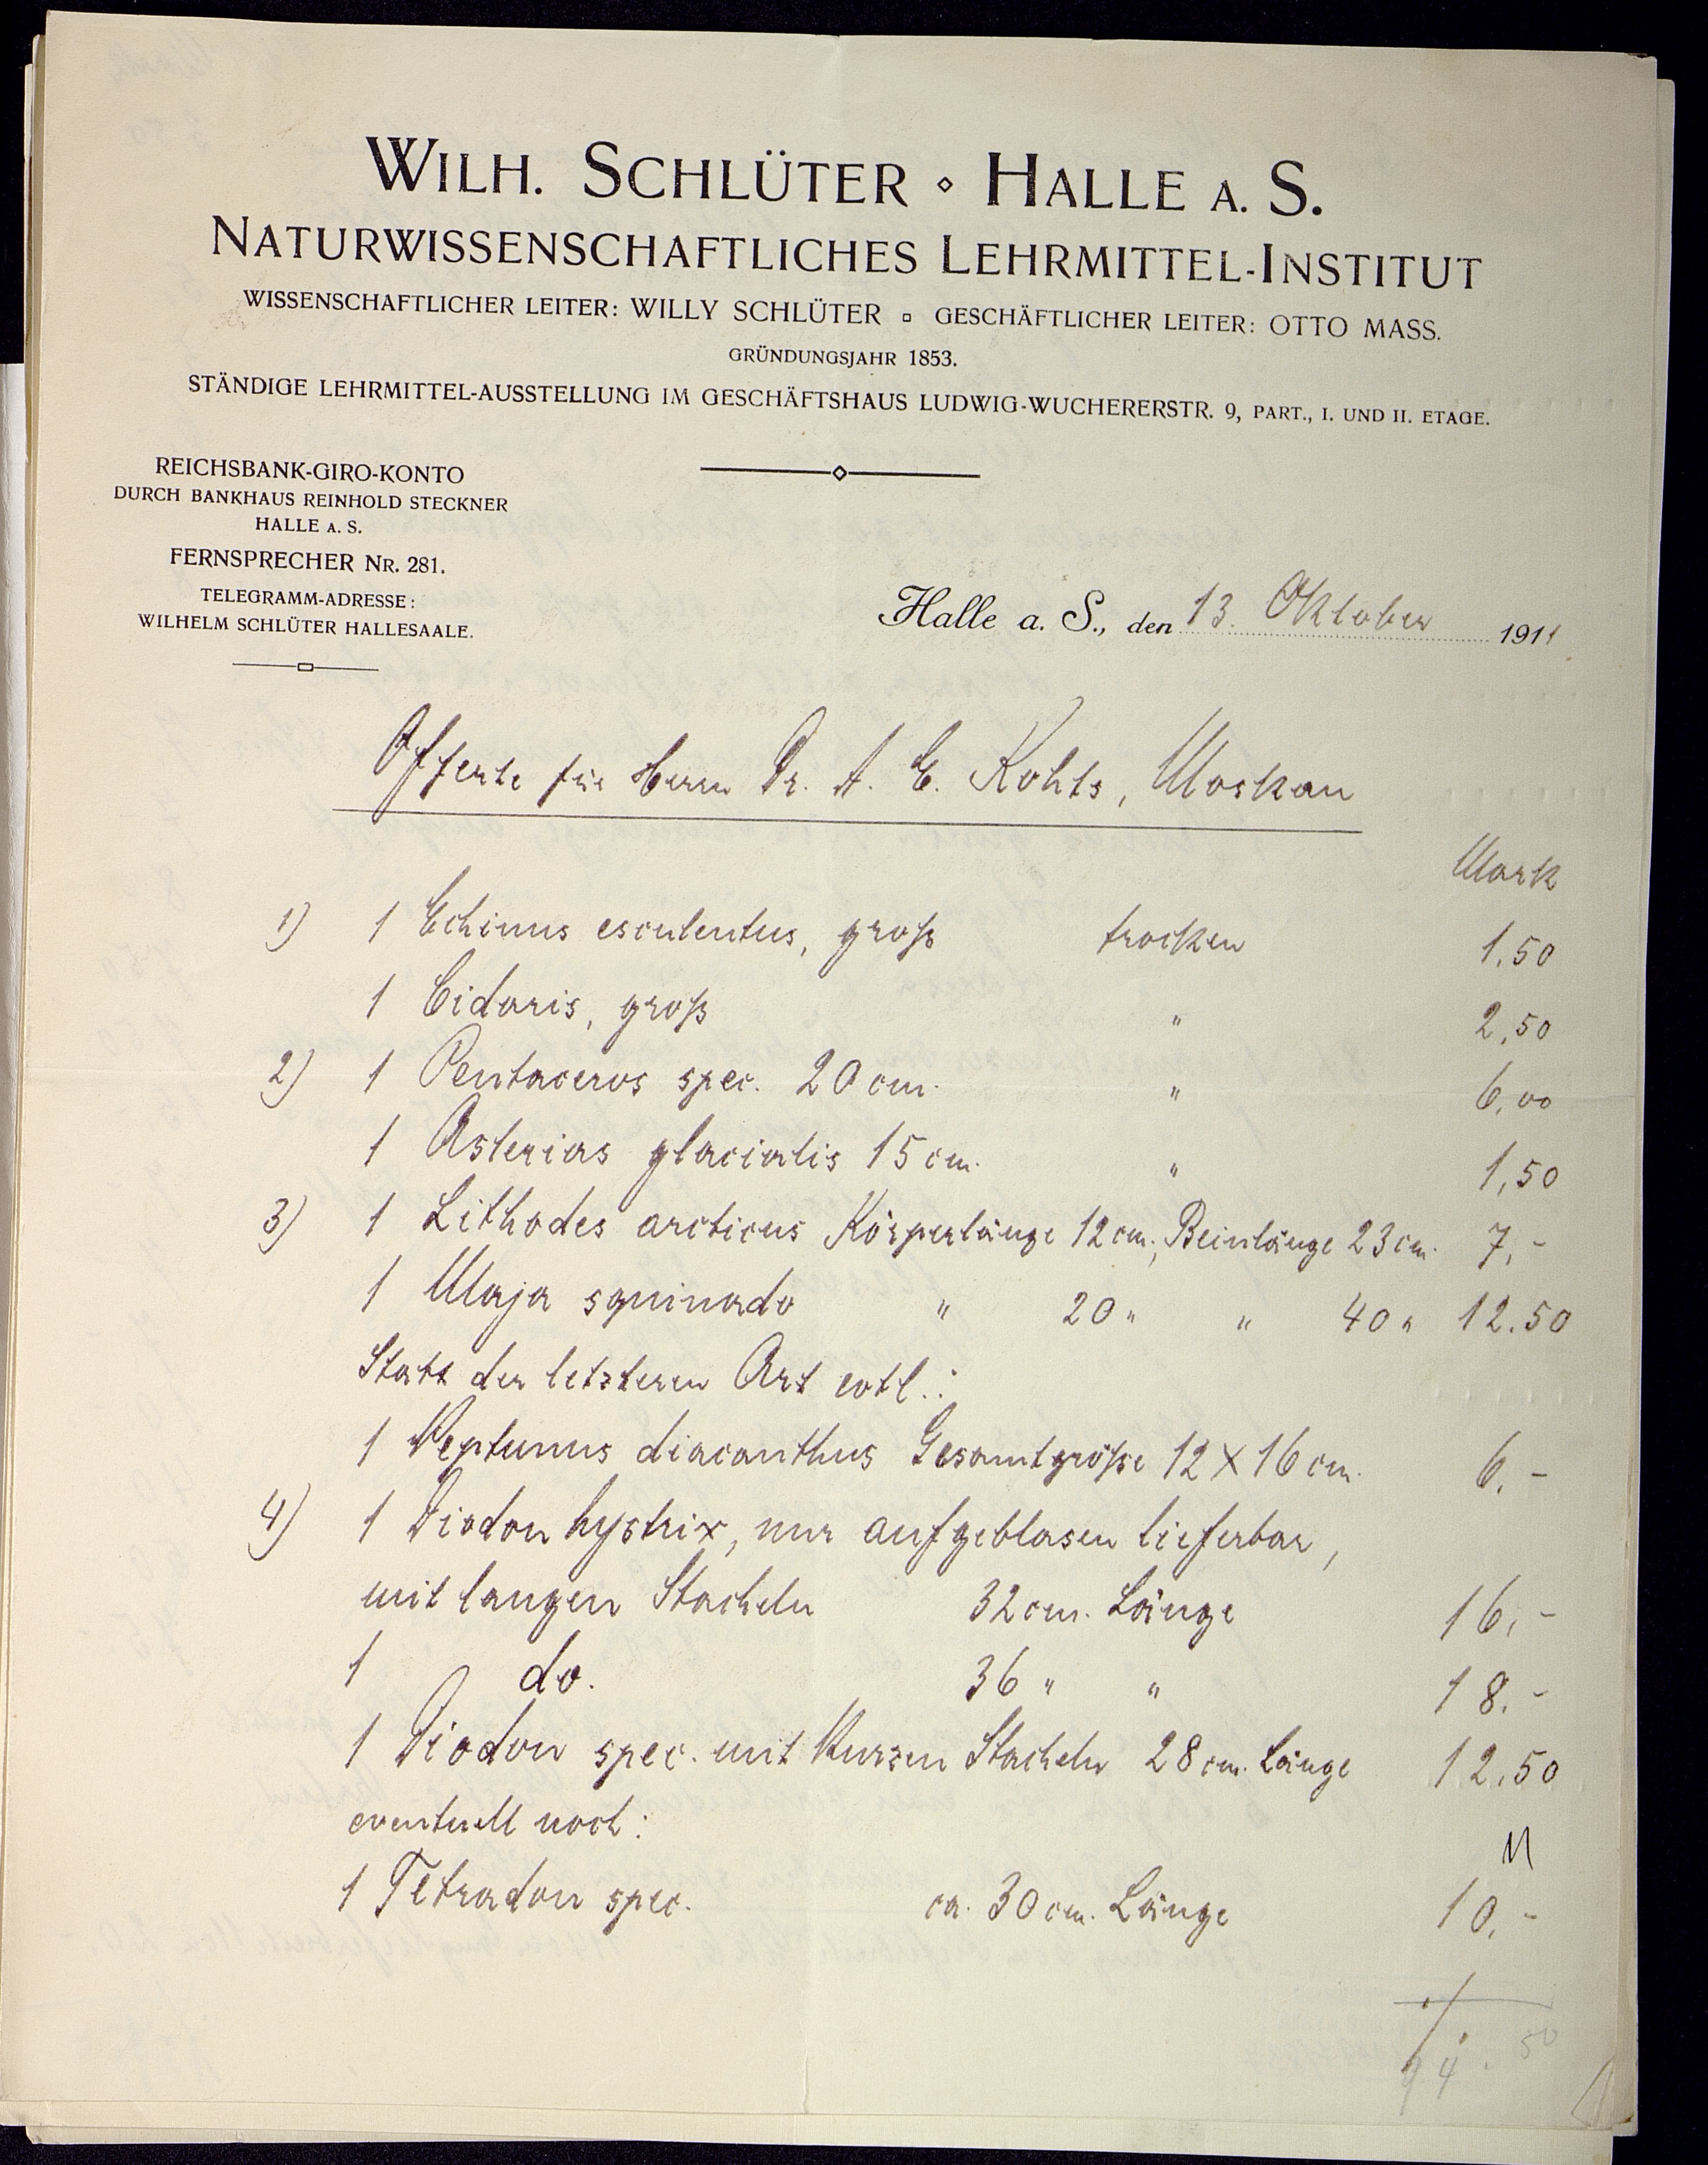 WILH. SCHLÜTER ⋄ HALLE A. S.
NATURWISSENSCHAFTLICHES LEHRMITTEL-INSTITUT
WISSENSCHAFTLICHER LEITER: WILLY SCHLÜTER ▫ GESCHÄFTLICHER LEITER: OTTO MASS.
GRÜNDUNGSJAHR 1853.
STÄNDIGE LEHRMITTEL-AUSSTELLUNG IM GESCHÄFTSHAUS LUDWIG-WUCHERERSTR. 9, PART., I. UND II. ETAGE.
REICHSBANK-GIRO-KONTO
DURCH BANKHAUS REINHOLD STECKNER
HALLE A. S.
FERNSPRECHER NR. 281.
TELEGRAMM-ADRESSE:
WILHELM SCHLÜTER HALLESAALE.
Halle a. S., den 13. Oktober 1911
Offerte für Herrn Dr. A. E. Kohts, Moskau
Mark
1) 1 Echinus esculentus, groß trocken 1,50
1 Cidaris, groß " 2,50
2) 1 Pentaceros spec. 20 cm. " 6,00
1 Asterias glacialis 15 cm. " 1,50
3) 1 Lithodes arcticus Körperlänge 12 cm., Beinlänge 23 cm. 7,-
1 Maja squinado " 20 " " 40 " 12.50
Statt der letzteren Art evtl.:
1 Neptunus diacanthus Gesamtgröße 12 X 16 cm. 6.-
4) 1 Diodon hystrix, nur aufgeblasen lieferbar,
mit langen Stacheln 32 cm. Länge 16,-
1 do. 36 " " 18.-
1 Diodon spec. mit kurzen Stacheln 28 cm. Länge 12.50
eventuell noch:
1 Tetradon spec. ca. 30 cm. Länge 10.-
94.50